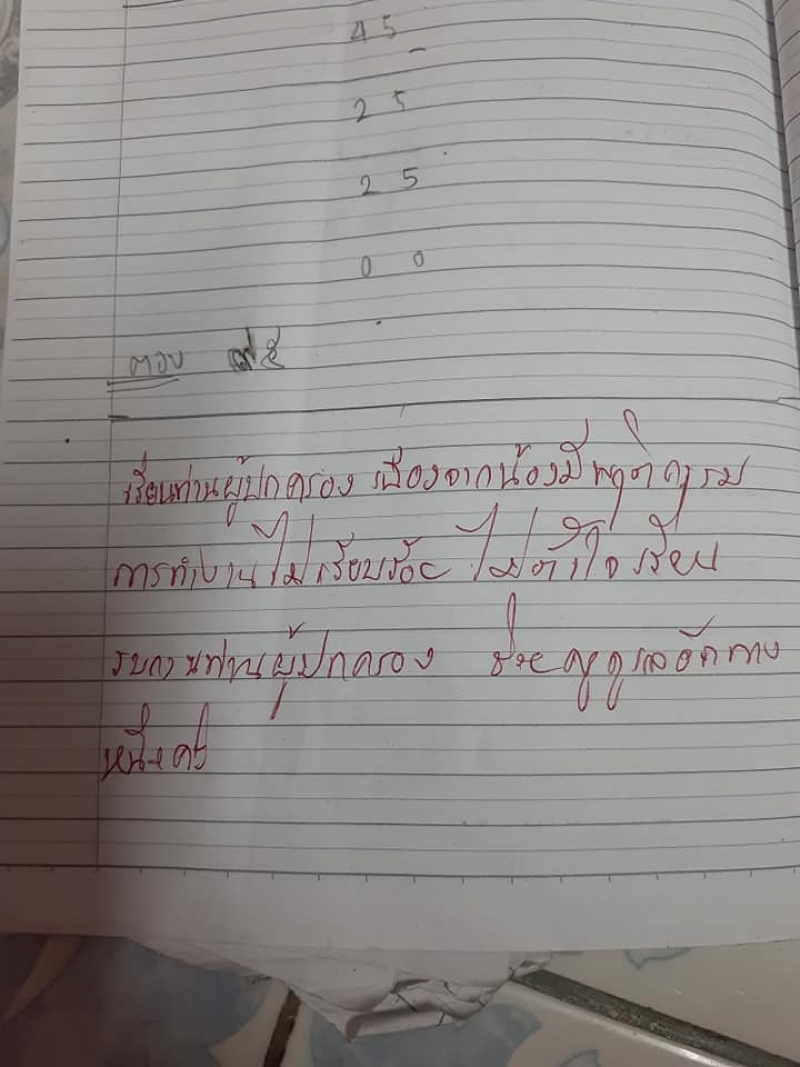 45
25
25
00
ตอบ ๙๕
เรียนท่านผู้ปกครอง เนื่องจากน้องมีพฤติกรรม
การทำงานไม่เรียบร้อย ไม่ตั้งใจเรียน
รบกวนท่านผู้ปกครอง ช่วยดูแลอีกทาง
หนึ่งครับ